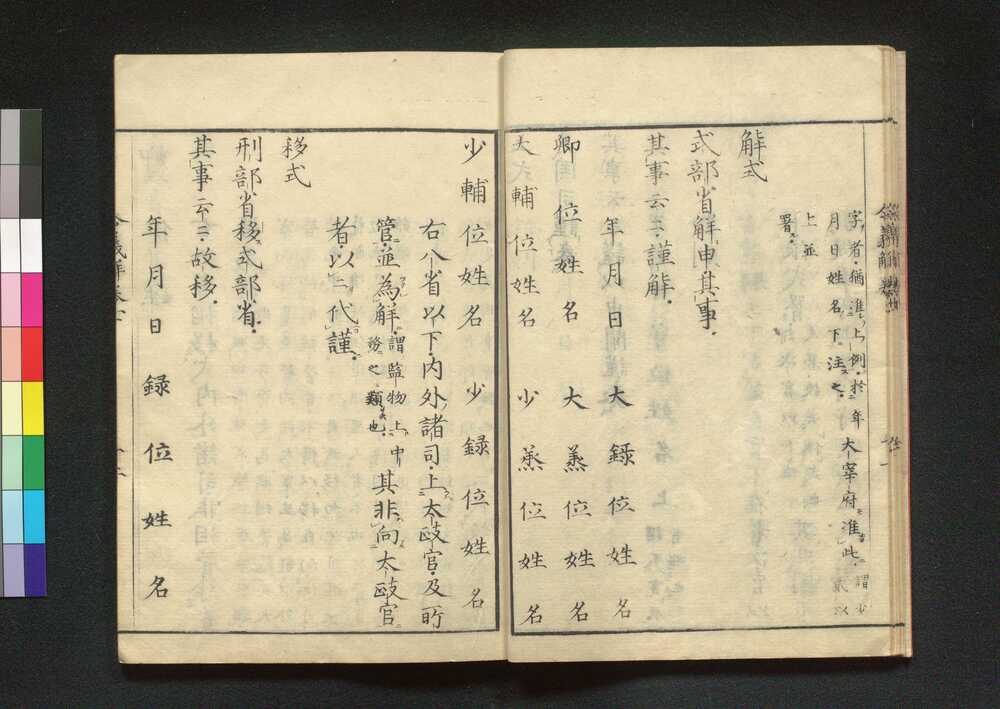 字者猶准上例於年
月日姓名下注之
大宰府准此
謂少
貳以
上並
署
解式
式部省解申其事
其事云云謹解
年月日 大録位姓名
卿位姓名 大丞位姓名
大輔位姓名 少丞位姓名
少輔位姓名 少録位姓名
右八省以下内外諸司上太政官及所
管並為解
謂監物上中
務之類也
其非向太政官
者以〻代謹
移式
刑部省移式部省
其事云〻故移
年月日録位姓名